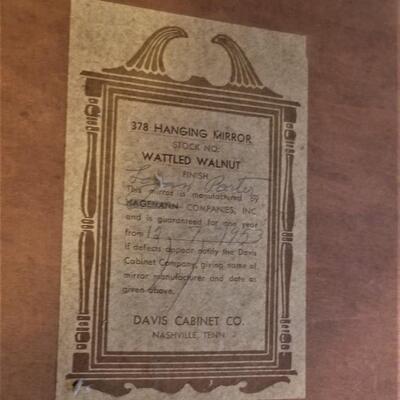 378 HANGING MIRROR
STOCK NO:
WATTLED WALNUT
FINISH
This mirror is manufactured by
HAGEMANN COMPANIES, INC
and is guaranteed for one year
from 12 - 7 - 1953
If defects appear notify the Davis
Cabinet Company, giving name of
mirror manufacturer and date as
given above.
DAVIS CABINET CO.
NASHVILLE, TENN